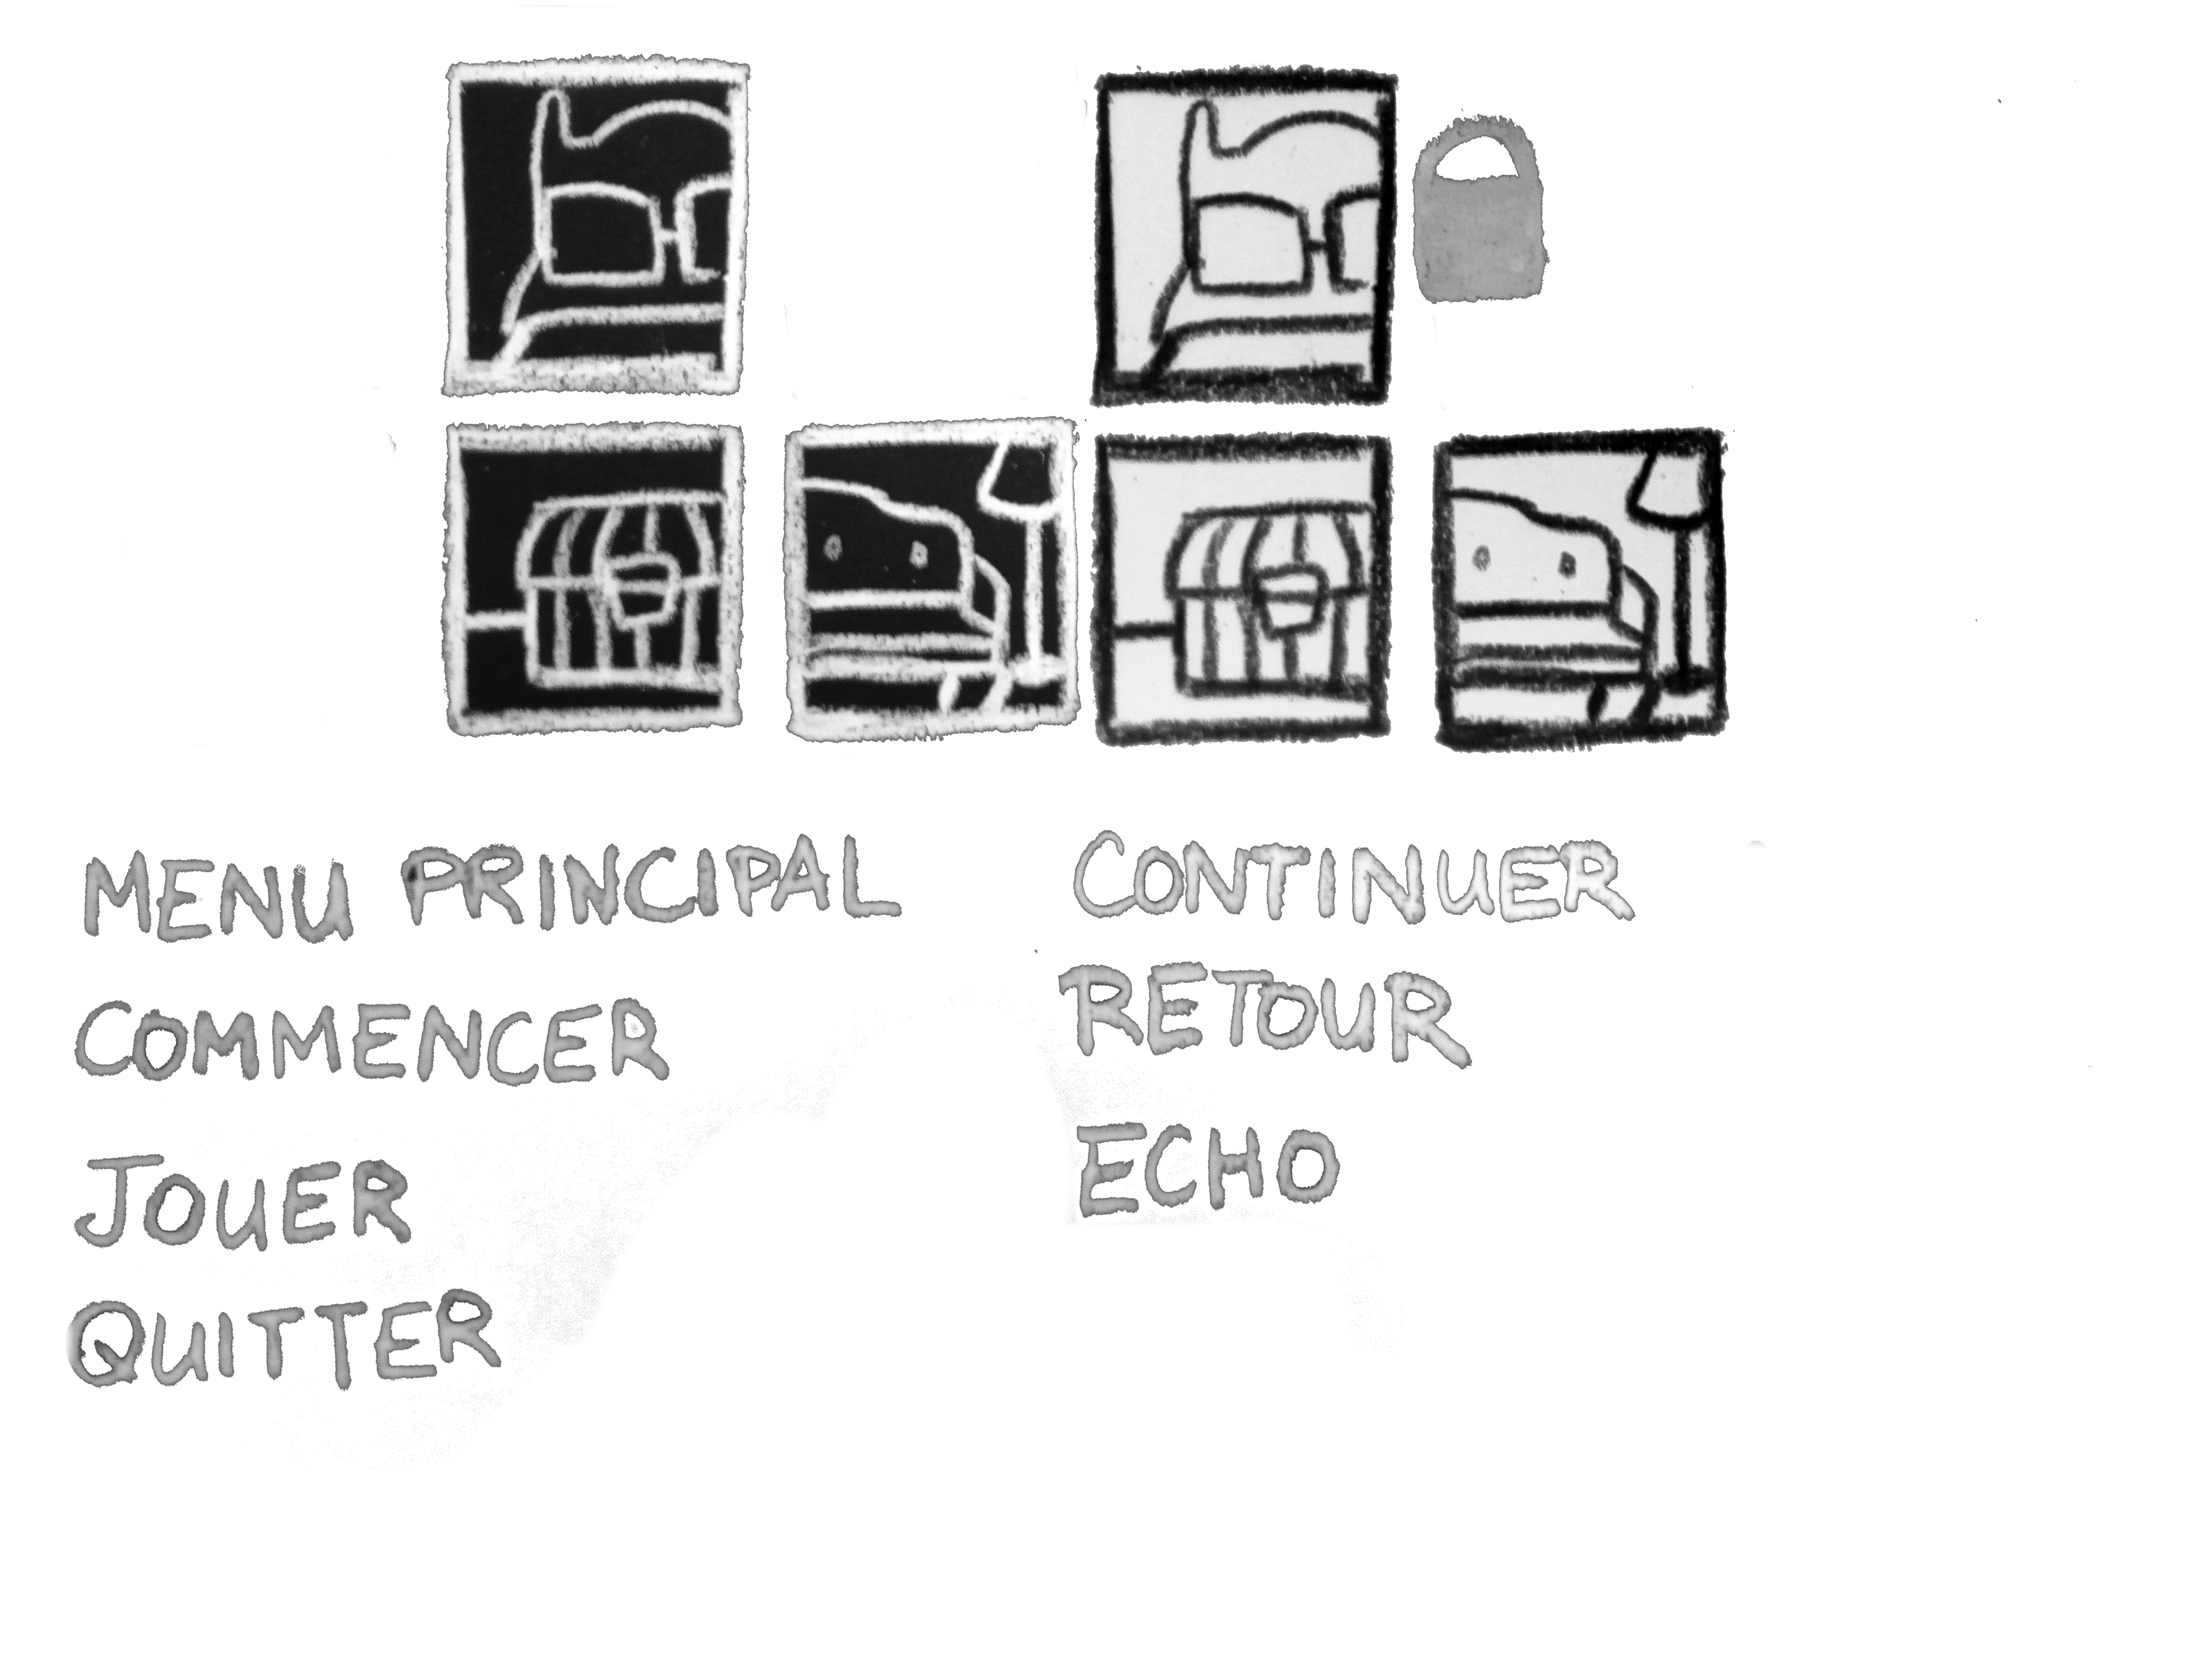 MENU PRINCIPAL
COMMENCER
JOUER
QUITTER
CONTINUER
RETOUR
ECHO